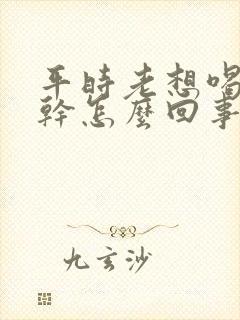 平時老想喝
幹怎麼回事
九玄沙